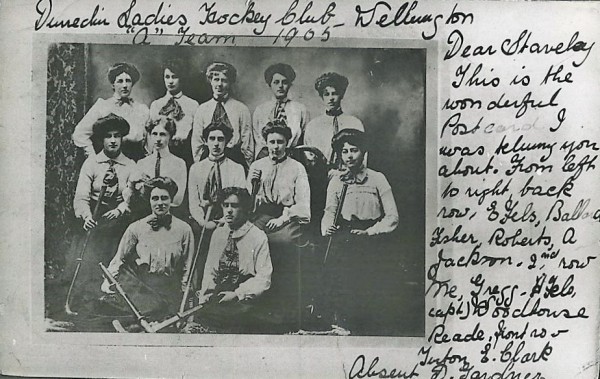 Dunedin Ladies Hockey Club - Wellington
"A" Team 1905
Dear Staveley
This is the
wonderful
Postcard I
was telling you
about. From left
to right, back
row, E Fels, Ballard
Fisher, Roberts, A
Jackson. 2nd row
Me, Gregg - Fels,
capt) Woodhouse
Reade, front row
E. Clark
Absent D. Gardner